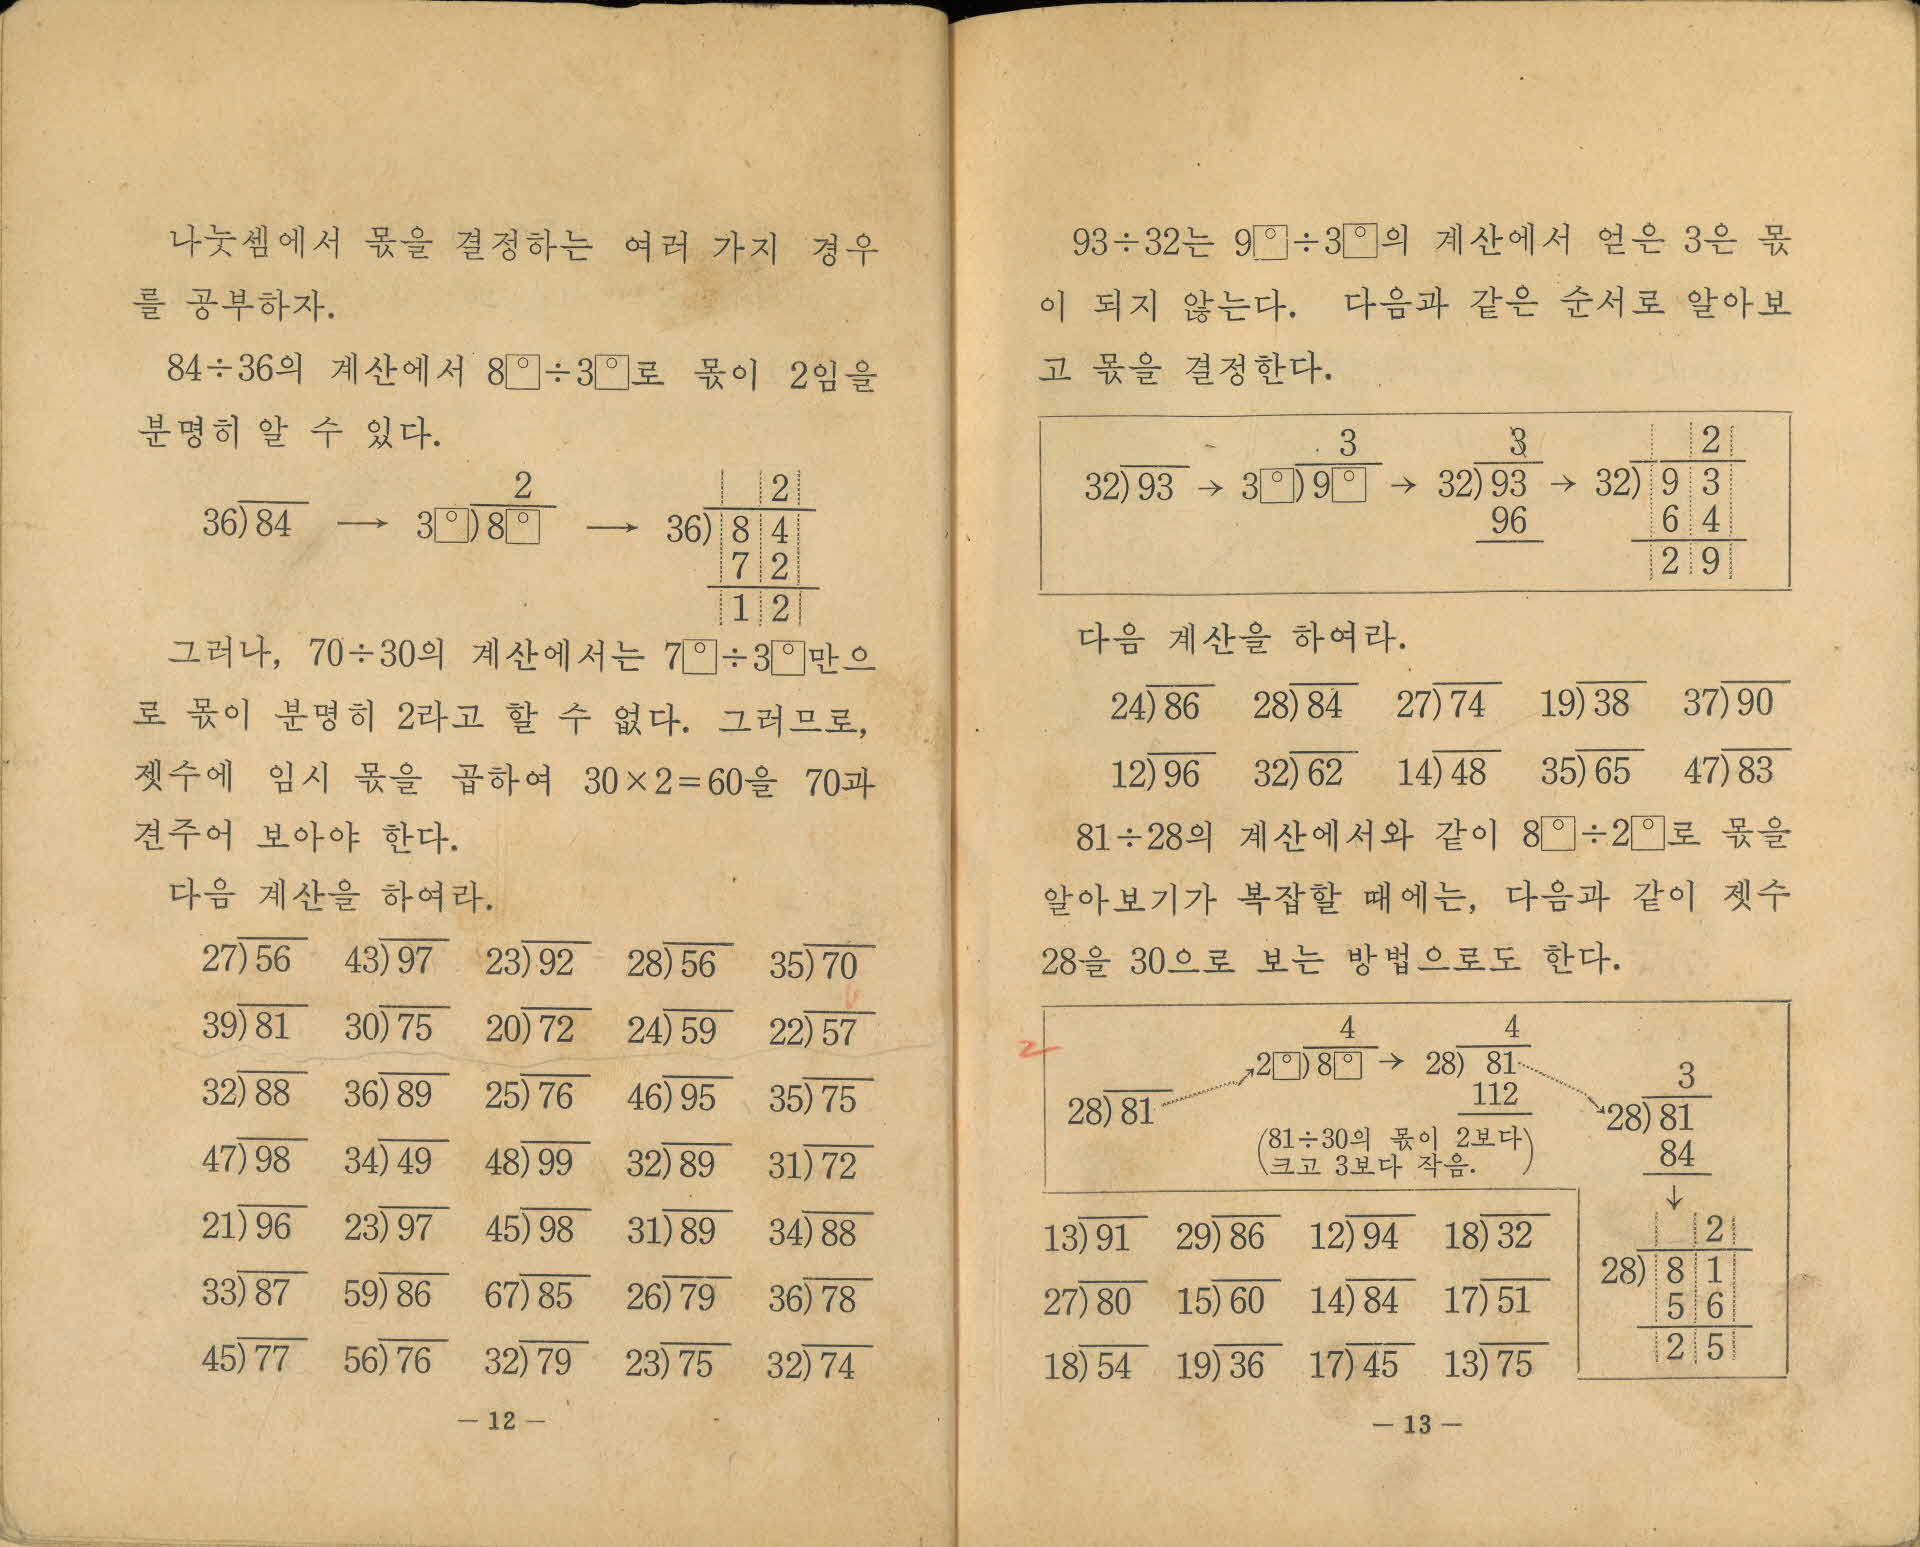 나눗셈에서 몫을 결정하는 여러 가지 경우
를 공부하자.
84÷36의 계산에서 8□÷3□로 몫이 2임을
분명히 알 수 있다.
2 2
36)84 → 3□)8□ → 36)8 4
7 2
1 2
그러나, 70÷30의 계산에서는 7□÷3□만으
로 몫이 분명히 2라고 할 수 없다. 그러므로,
젯수에 임시 몫을 곱하여 30×2=60을 70과
견주어 보아야 한다.
다음 계산을 하여라.
27)56 43)97 23)92 28)56 35)70
39)81 30)75 20)72 24)59 22)57
32)88 36)89 25)76 46)95 35)75
47)98 34)49 48)99 32)89 31)72
21)96 23)97 45)98 31)89 34)88
33)87 59)86 67)85 26)79 36)78
45)77 56)76 32)79 23)75 32)74
— 12 —
93÷32는 9□÷3□의 계산에서 얻은 3은 몫
이 되지 않는다. 다음과 같은 순서로 알아보
고 몫을 결정한다.
3 3 2
32)93 → 3□)9□ → 32)93 → 32)9 3
96 6 4
2 9
다음 계산을 하여라.
24)86 28)84 27)74 19)38 37)90
12)96 32)62 14)48 35)65 47)83
81÷28의 계산에서와 같이 8□÷2□로 몫을
알아보기가 복잡할 때에는, 다음과 같이 젯수
28을 30으로 보는 방법으로도 한다.
4 4
2□)8□ → 28)81
112
28)81
(81÷30의 몫이 2보다
크고 3보다 작음.)
3
28)81
84
↓
2
28)8 1
5 6
2 5
13)91 29)86 12)94 18)32
27)80 15)60 14)84 17)51
18)54 19)36 17)45 13)75
— 13 —
2